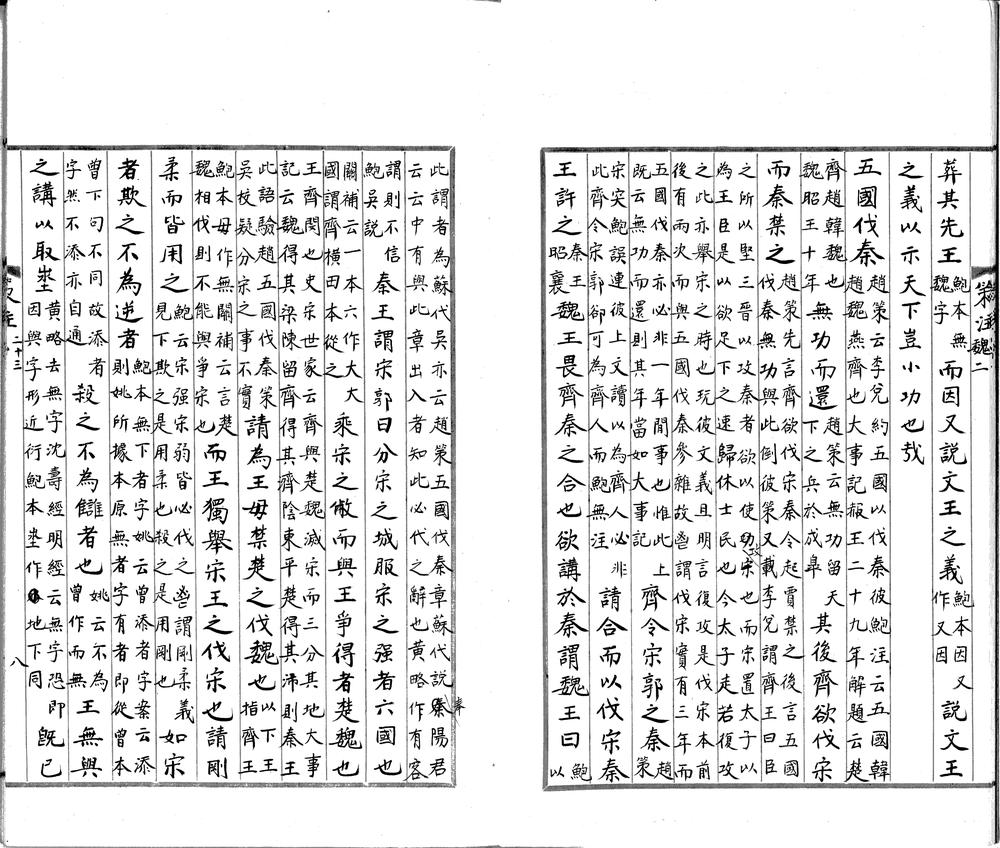 葬其先王鮑本無魏字而因又說文王之義鮑本因又作又因說文王
之義以示天下豈小功也哉
五國伐秦趙策云李兌約五國以伐秦彼鮑注云五國韓趙魏燕齊也大事記赧王二十九年解題云楚
齊趙韓魏也魏昭王十年無功而還趙策云無功留天下之兵於成皋其後齊欲伐宋
而秦禁之趙策先言齊欲伐宋秦令起賈禁之後言五國伐秦無功與此倒彼策又載李兌謂齊王曰臣
之所以堅三晉以攻秦者欲以使攻宋也而宋置太子以為王臣是以欲足下之速歸休士民也今太子走若復攻
之此亦舉宋之時也玩彼文義且明言復攻是伐宋本前後有兩次而與五國伐秦參雜故鮑謂伐宋實有三年而
五國伐秦亦必非一年間事也惟此上既云無功而還則其年當如大事記齊令宋郭之秦趙策
宋突鮑誤連彼上文讀以為齊人必非此齊令宋郭卻可為齊人而鮑無注請合而以伐宋秦
王許之秦王昭襄魏王畏齊秦之合也欲講於秦謂魏王曰鮑以
此謂者為蘇代吳亦云趙策五國伐秦章蘇代說奉陽君云云中有與此章出入者知此必代之解也黃略作有客
謂則不信鮑吳說秦王謂宋郭曰分宋之城服宋之强者六國也
關補云一本六作大大國謂齊橫田本從之乘宋之敝而與王爭得者楚魏也
王齊閔也史宋世家云齊與楚魏滅宋而三分其地大事記云魏得其梁陳留齊得其濟陰東平楚得其沛則秦王
此語驗趙五國伐秦策吳校疑分宋之事不實請為王毋禁楚之伐魏也以下王指齊王
鮑本毋作無關補云言楚魏相伐則不能與爭宋也而王獨舉宋王之伐宋也請剛
柔而皆用之鮑云宋强宋弱皆必伐之鮑謂剛柔義見下欺之是用柔也殺之是用剛也如宋
者欺之不為逆者鮑本無下者字姚云曾添者字案云添則姚所據本原無者字有者即從曾本
曾下句不同故添者字然不添亦自通殺之不為讎者也姚云不為曾作而無王無與
之講以取埊黃略去無字沈壽經明經云無字恐即因與字形近衍鮑本埊作地下同既已